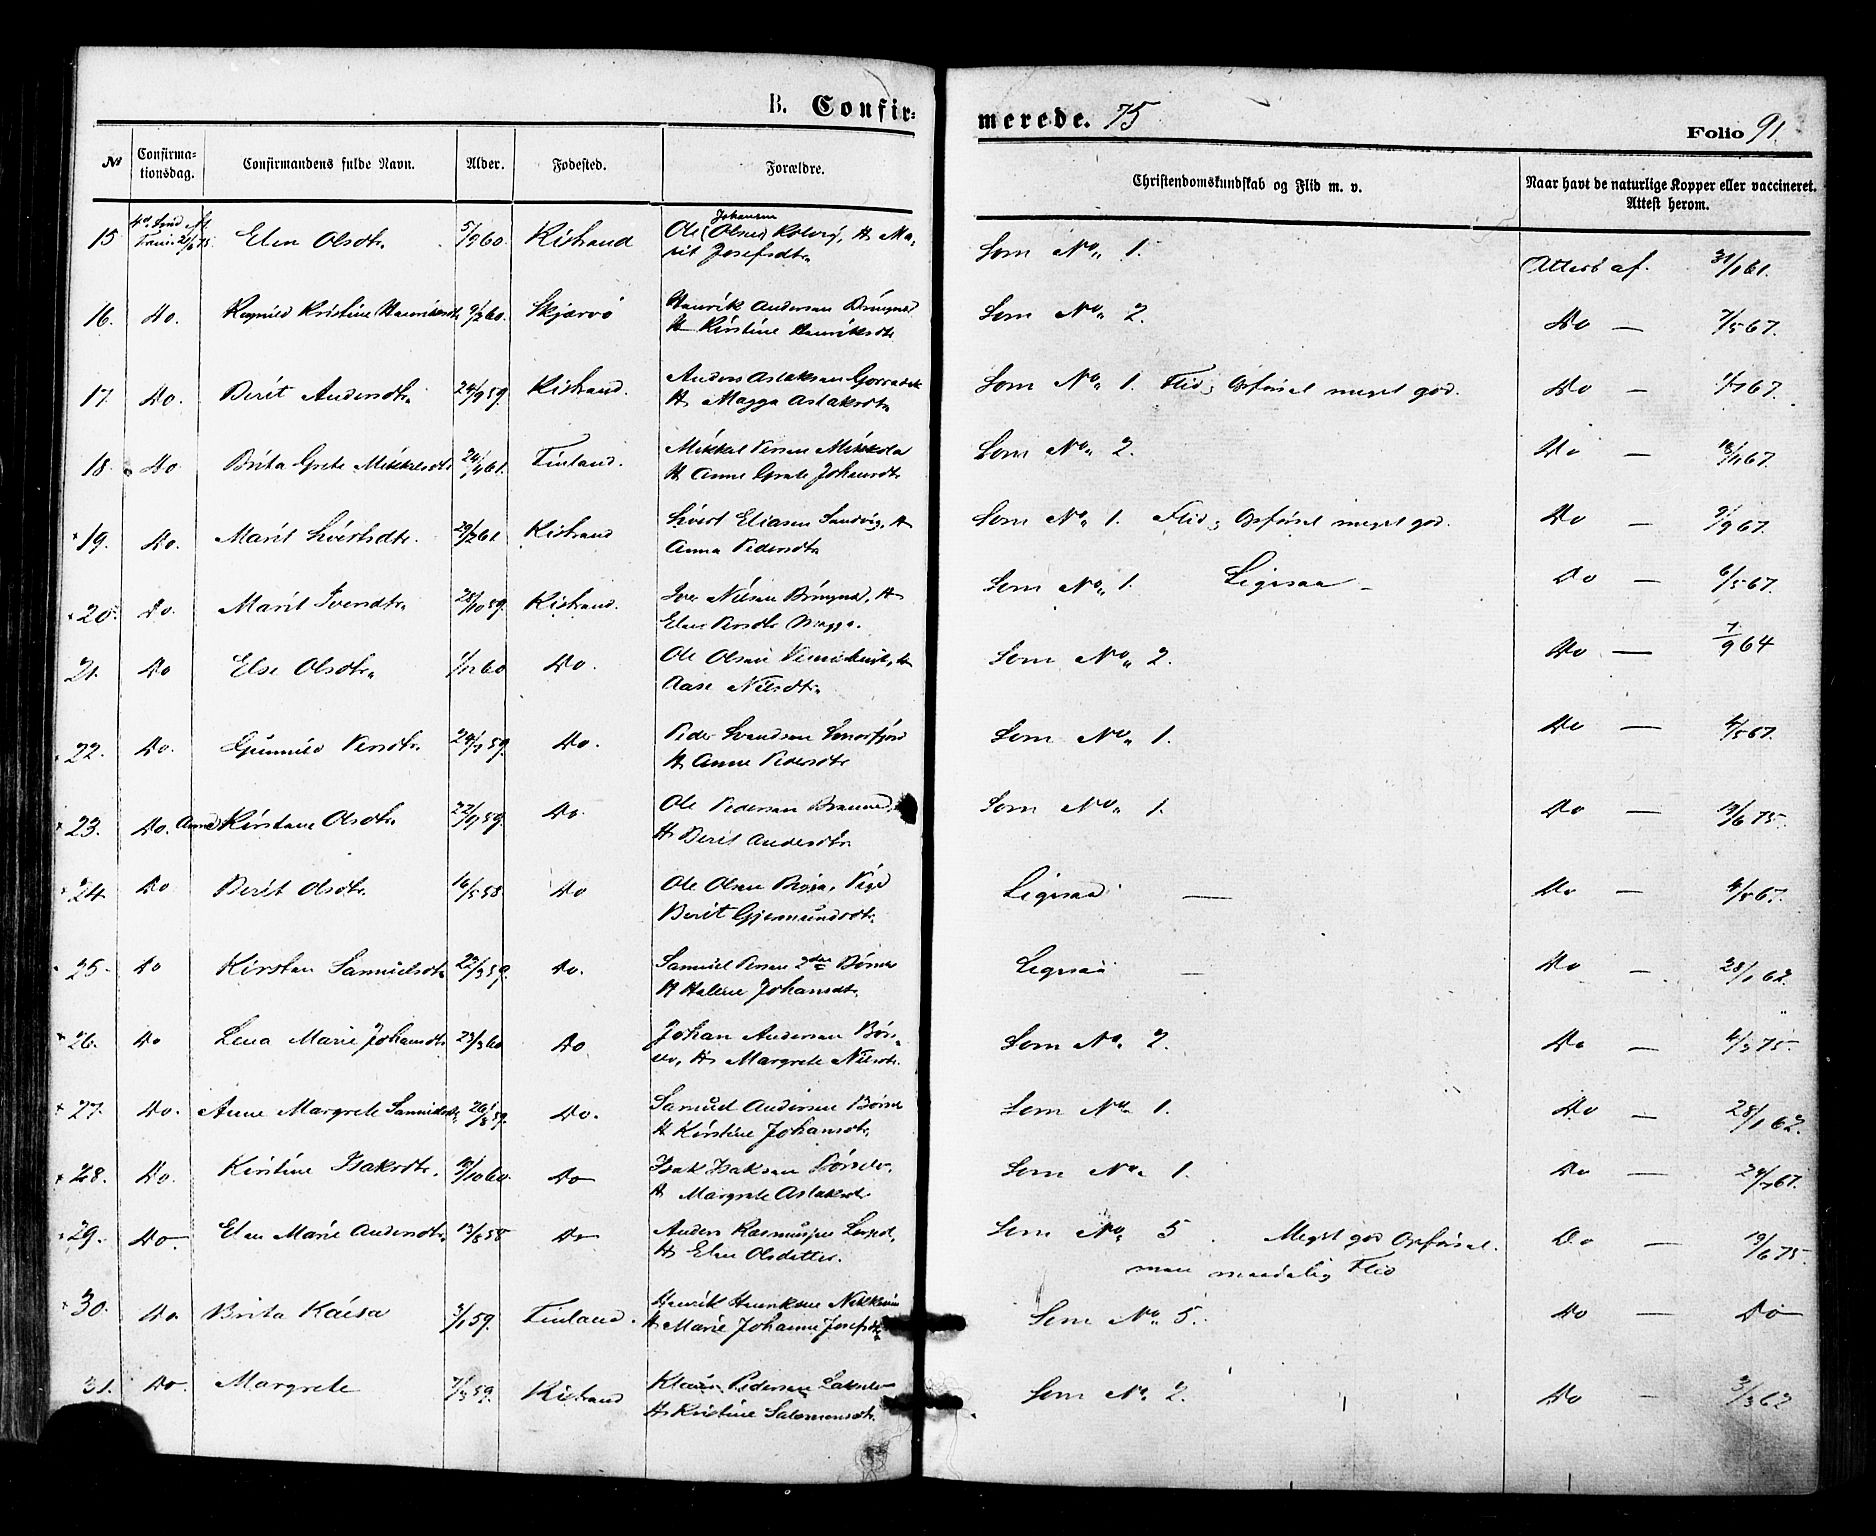 B. Confir-
merede. 75
Folio 91.
№ Confirma-tionsdag. Confirmandens fulde Navn. Alder. Fødested. Forældre. Christendomskundskab og Flid m. v. Naar havt de naturlige Kopper eller vaccineret. Attest herom.
15 Elen Olsdtr. 5/9 60. Kistrand Ole (Olsen) Johansen Kolvig, H Ma-
rit Josefsdtr. Som No. 1. Attest af. 31/1 61.
16. Do. Kristine Henriksdtr 60. Skjærvø Henrik Andersen
H Kirstine Henriksdtr Som No. 2. Do — 7/5 67.
17. Do. Berit Andersdtr. 24/9 59. Kistrand. Anders Aslaksen
H Magga Aslaksdtr Som No. 1. Flid; Opførsel meget god. Do — 67.
18. Do Brita Grete Mikkelsdtr 61. Finland. Mikkel Persen Mikkola
H Anne Grete Johansdtr Som No. 2. Do — 67.
19. Do. Marit Sivertsdtr. 29/2 61 Kistrand Sivert Eliasen Sandvig, H
Anna Pedersdtr Som No. 1. Flid; Opførsel meget god. Do — 67.
20. Do. Marit Iversdtr. 28/10 59. Kistrand. Iver Nilsen H
Elen Persdtr Som No. 1. Ligesaa — Do — 6/5 67.
21. Do Else Olsdtr. 60 Do. Ole Olsen
Aase Nilsdtr. Som No. 2. Do — 7/9 64
22. Do. Gunnild Persdtr. 59. Do. Peder Svendsen
H Anne Pedersdtr Som No. 1. Do — 67.
23. Do. Anne Kirstine Olsdtr. 59. Do. Ole Pedersen
H Berit Andersdtr. Som No. 1. Do — 19/6 75.
24. Do Berit Olsdtr. 16/5 58 Do Ole Olsen
Berit Gjermundsdtr. Ligesaa — Do — 67.
25. Do Kirsten Samuelsdtr 22/3 59. Do. Samuel Persen 2den Børse
H Helene Johansdtr. Ligesaa — Do — 28/1 62.
26. Do Lena Marie Johansdtr 23/3 60 Do Johan Andersen Børs-
elv, H Margrete Nilsdtr. Som No. 2. Do — 4/3 75.
27. Do. Anne Margrete Samuelsdtr. 26/8 59. Do. Samuel Andersen Børse
H Kirstine Johansdtr, Som No. 1. Do — 28/1 62.
28. Do. Kirstine Isaksdtr. 60. Do Isak Isaksen Børselv.
H Margrete Aslaksdtr. Som No. 1. Do — 67.
29. Do. Elen Marie Andersdtr. 58 Do Anders Rasmussen
H Elen Olsdatter. Som No. 5. Meget god Opførsel.
men maadelig Flid Do — 19/6 75.
30. Do. Brita Kaisa 59. Finland. Henrik Henriksen
H Marie Johanne Josefsdtr Som No. 5. Do — Do
31. Do. Margrete 59. Kistrand Pedersen Lakselv
H Kristine Salomonsdtr. Som No. 2. Do — 3/3 62